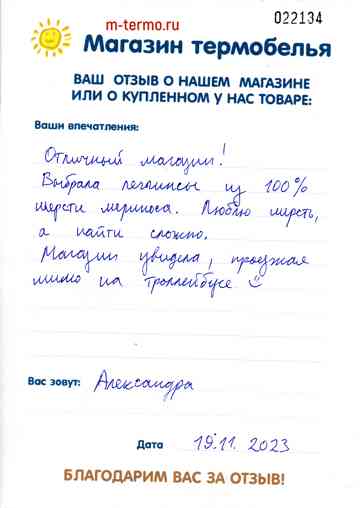 m-termo.ru
022134
Магазин термобелья
ВАШ ОТЗЫВ О НАШЕМ МАГАЗИНЕ
ИЛИ О КУПЛЕННОМ У НАС ТОВАРЕ:
Ваши впечатления:
Отличный магазин!
Выбрала леггинсы из 100%
шерсти мериноса. Люблю шерсть,
а найти сложно.
Магазин увидела, проезжая
мимо на троллейбусе ☺
Вас зовут: Александра
Дата 19.11.2023
БЛАГОДАРИМ ВАС ЗА ОТЗЫВ!